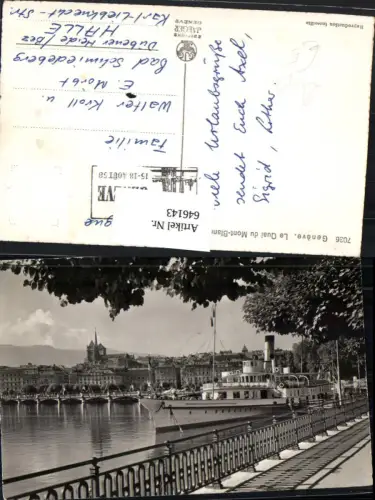 viele Urlaubsgrüße
sendet Euch Axel,
Sigrid, Lothar.
Familie
Walter Kroll u.
E. Morbt
Bad Schmiedeberg
Dübener Heide / Bez
HALLE
Karl-Liebknecht-Str.
15-18 AOUT 58
JAEGER
GENÈVE
Reproduction interdite
7036 Genève. Le Quai du Mont-Blanc
Artikel Nr.
646143